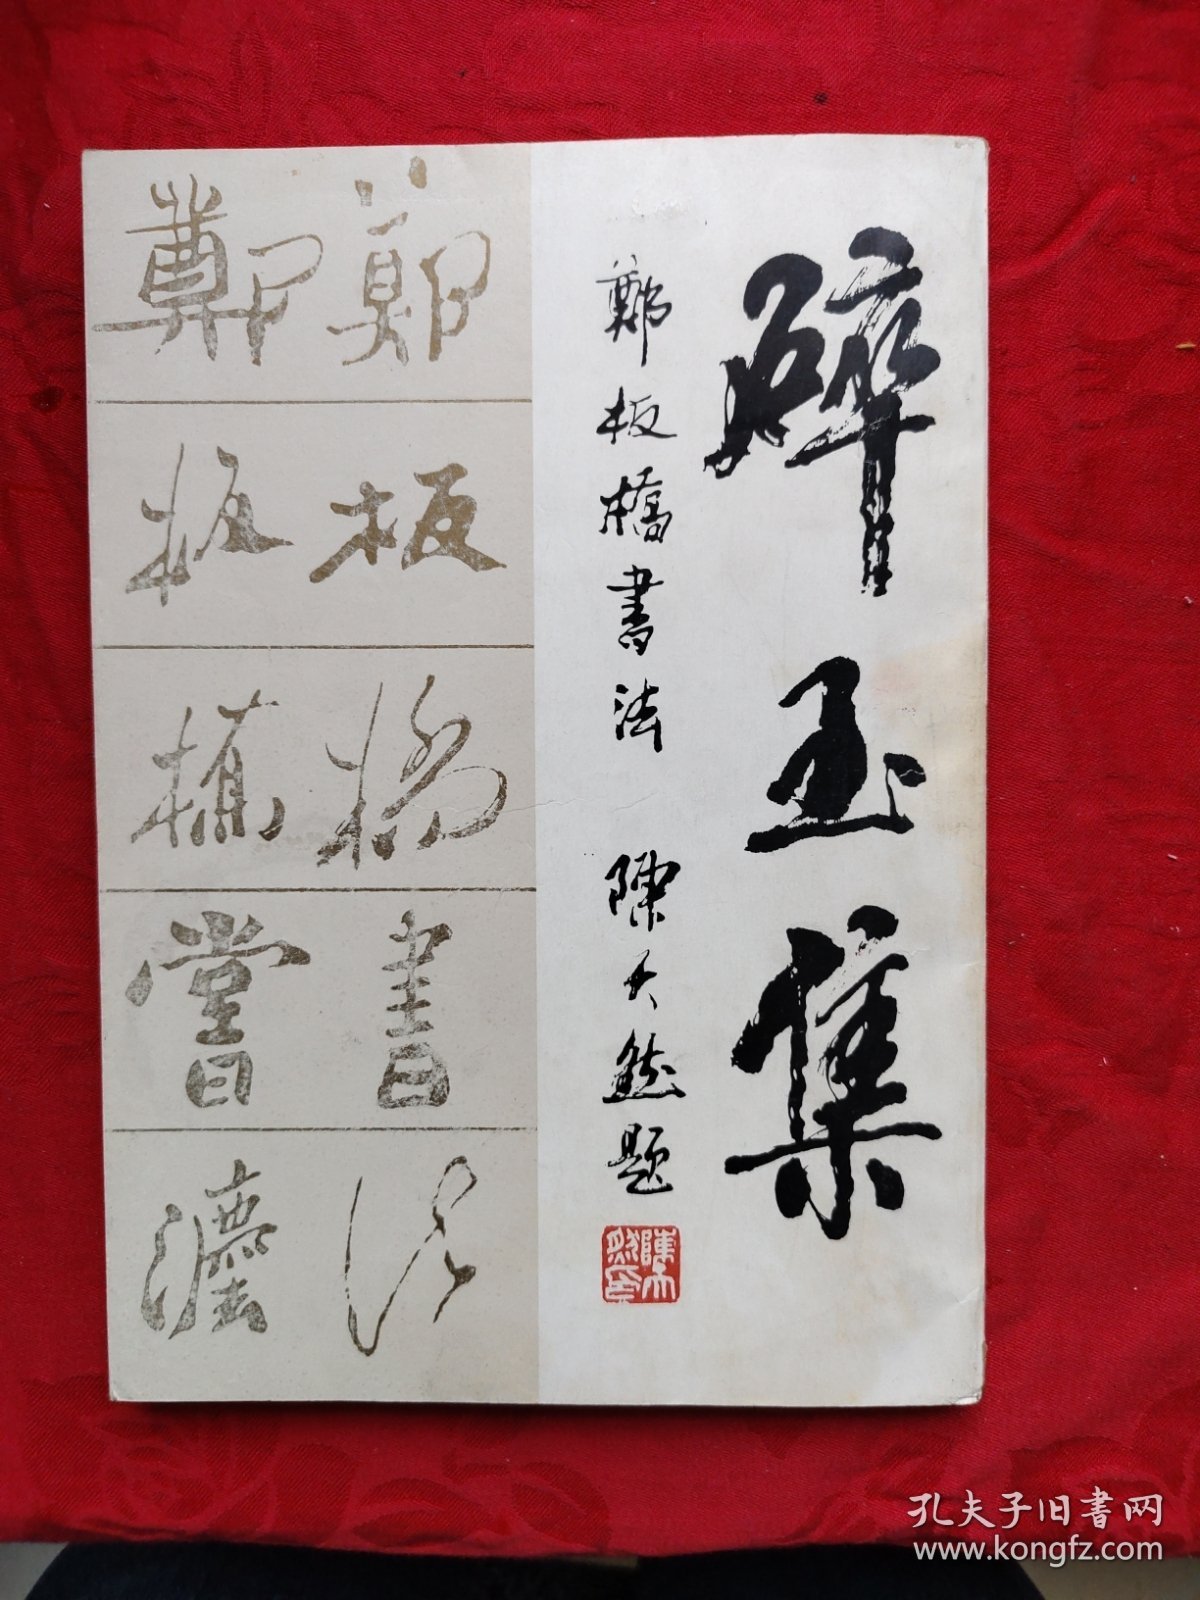 碎玉集
鄭板橋書法 陳大然題
陳大然印
鄭板橋書法
鄭板橋書法
孔夫子旧书网
www.kongfz.com